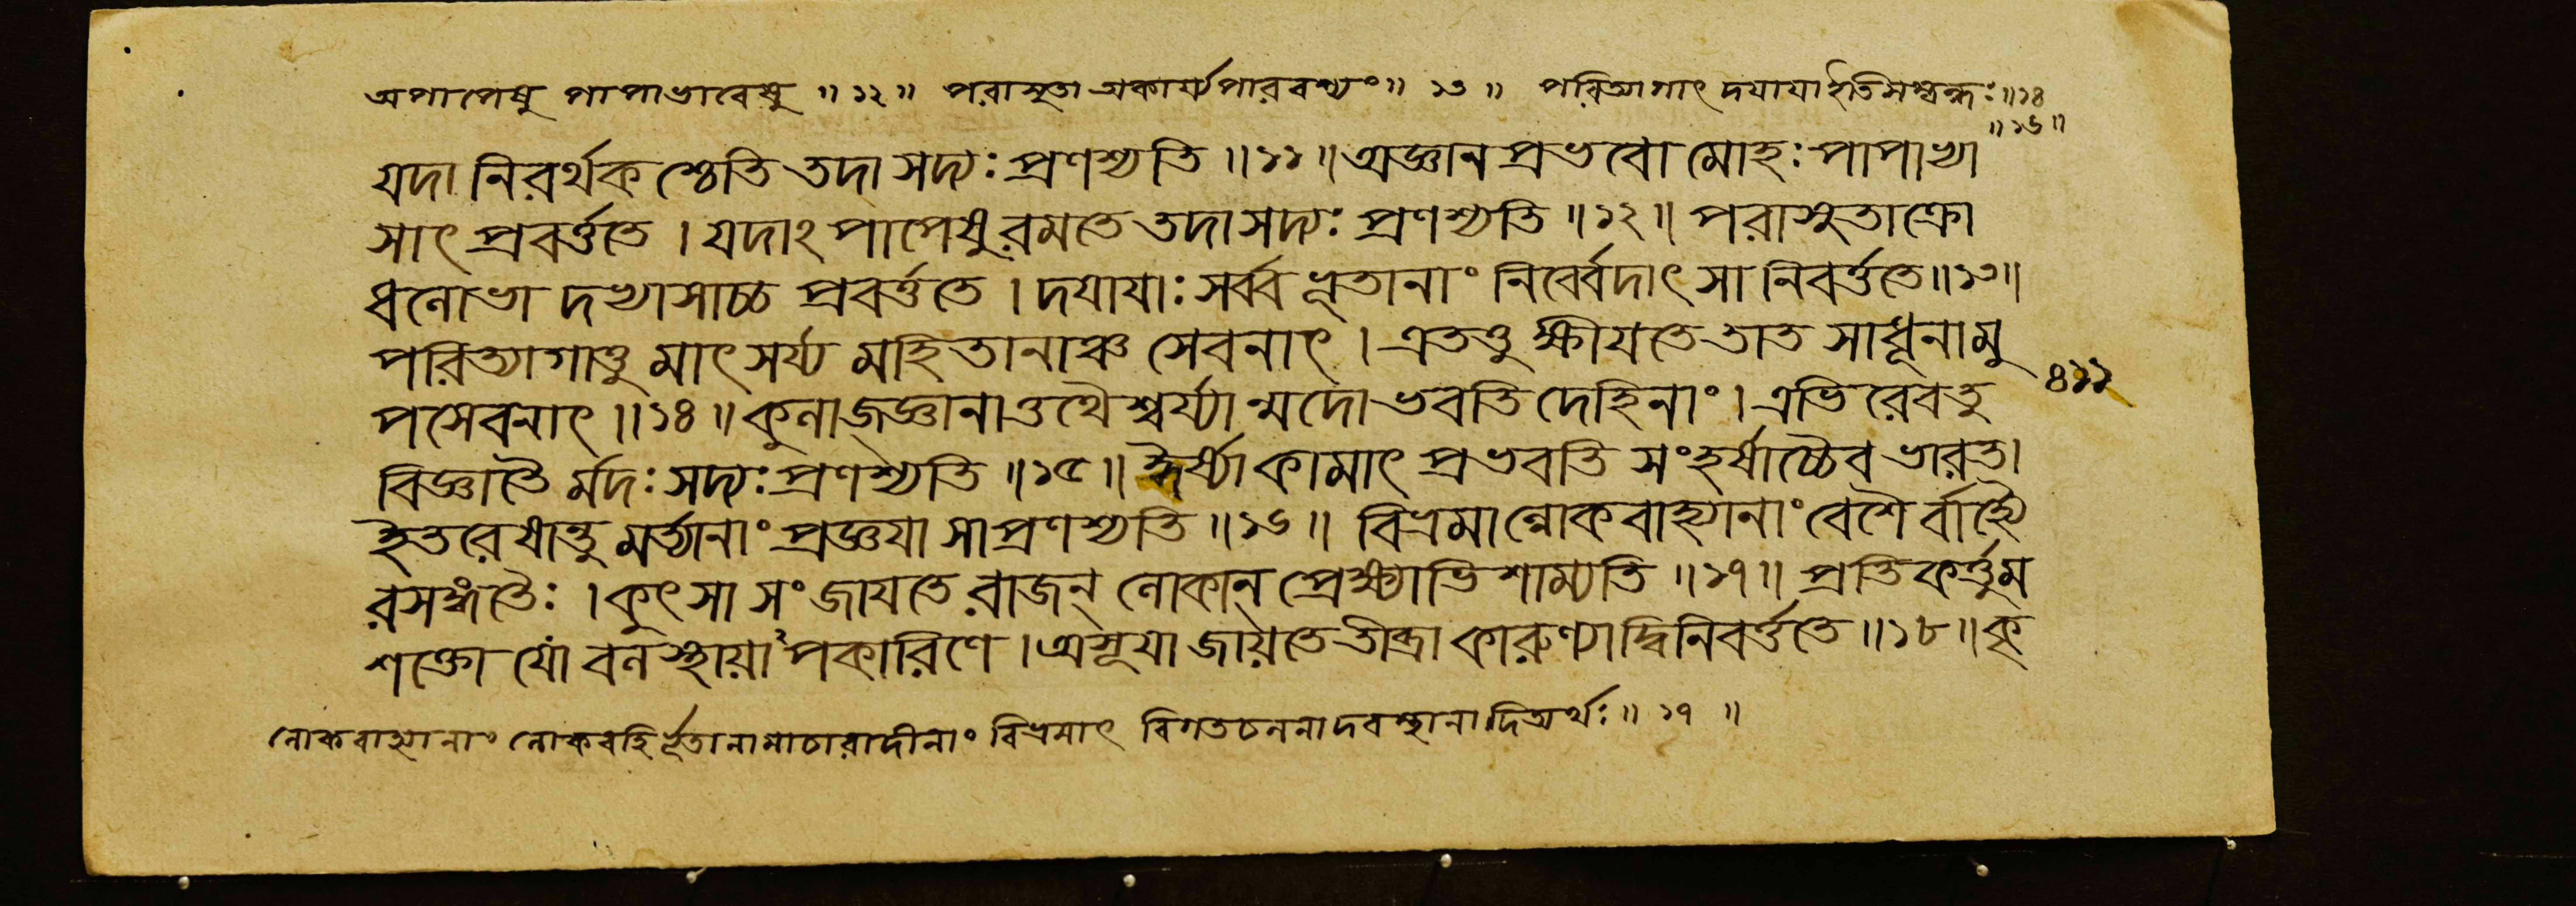 অপাপেষু পাপাভাবেষু ॥ ১২ ॥ পরাসূতা অকার্য্যপারবশ্যং ॥ ১৩ ॥ পরিত্যাগাৎ দয়ায়া ইতিসম্বন্ধঃ ॥ ১৪
॥ ১৬ ॥
যদা নিরর্থকশ্চেতি তদা সদ্যঃ প্রণশ্যতি ॥ ১১ ॥ অজ্ঞানপ্রভবো মোহঃ পাপাভ্যা
সাৎ প্রবর্ত্ততে । যদাঽপাপেষু রমতে তদা সদ্যঃ প্রণশ্যতি ॥ ১২ ॥ পরাসুতা ক্রো
ধলোভাদভ্যাসাচ্চ প্রবর্ত্ততে । দয়ায়াঃ সর্ব্বভূতানাং নির্ব্বেদাৎ সা নিবর্ত্ততে ॥ ১৩ ॥
পরিত্যাগাত্তু মাৎসর্য্যমহিতানাঞ্চ সেবনাৎ । এতত্তু ক্ষীয়তে তাত সাধূনামু
পসেবনাৎ ॥ ১৪ ॥ কুলাজ্জ্ঞানাত্তথৈশ্বর্য্যান্মদো ভবতি দেহিনাং । এভিরেব তু
৪১১
বিজ্ঞাতৈর্মদঃ সদ্যঃ প্রণশ্যতি ॥ ১৫ ॥ ঈর্ষ্যা কামাৎ প্রভবতি সংহর্ষাচ্চৈব ভারত ।
ইতরেষান্তু মর্ত্যানাং প্রজ্ঞয়া সা প্রণশ্যতি ॥ ১৬ ॥ বিভ্রমাল্লোকবাহ্যানাং বেশৈর্বাহ্যৈ
রসঙ্গতৈঃ । কুৎসা সংজায়তে রাজন্ লোকান্ প্রেক্ষ্যাভিশাম্যতি ॥ ১৭ ॥ প্রতিকর্ত্তুম
শক্তো যো বলস্থায়াপকারিণে । অসূয়া জায়তে তীব্রা কারুণ্যাদ্বিনিবর্ত্ততে ॥ ১৮ ॥ কৃ
লোকবাহ্যানাং লোকবহির্ভূতানামাচারাদীনাং বিভ্রমাৎ বিগতচলনাদবস্থানাদিত্যর্থঃ ॥ ১৭ ॥